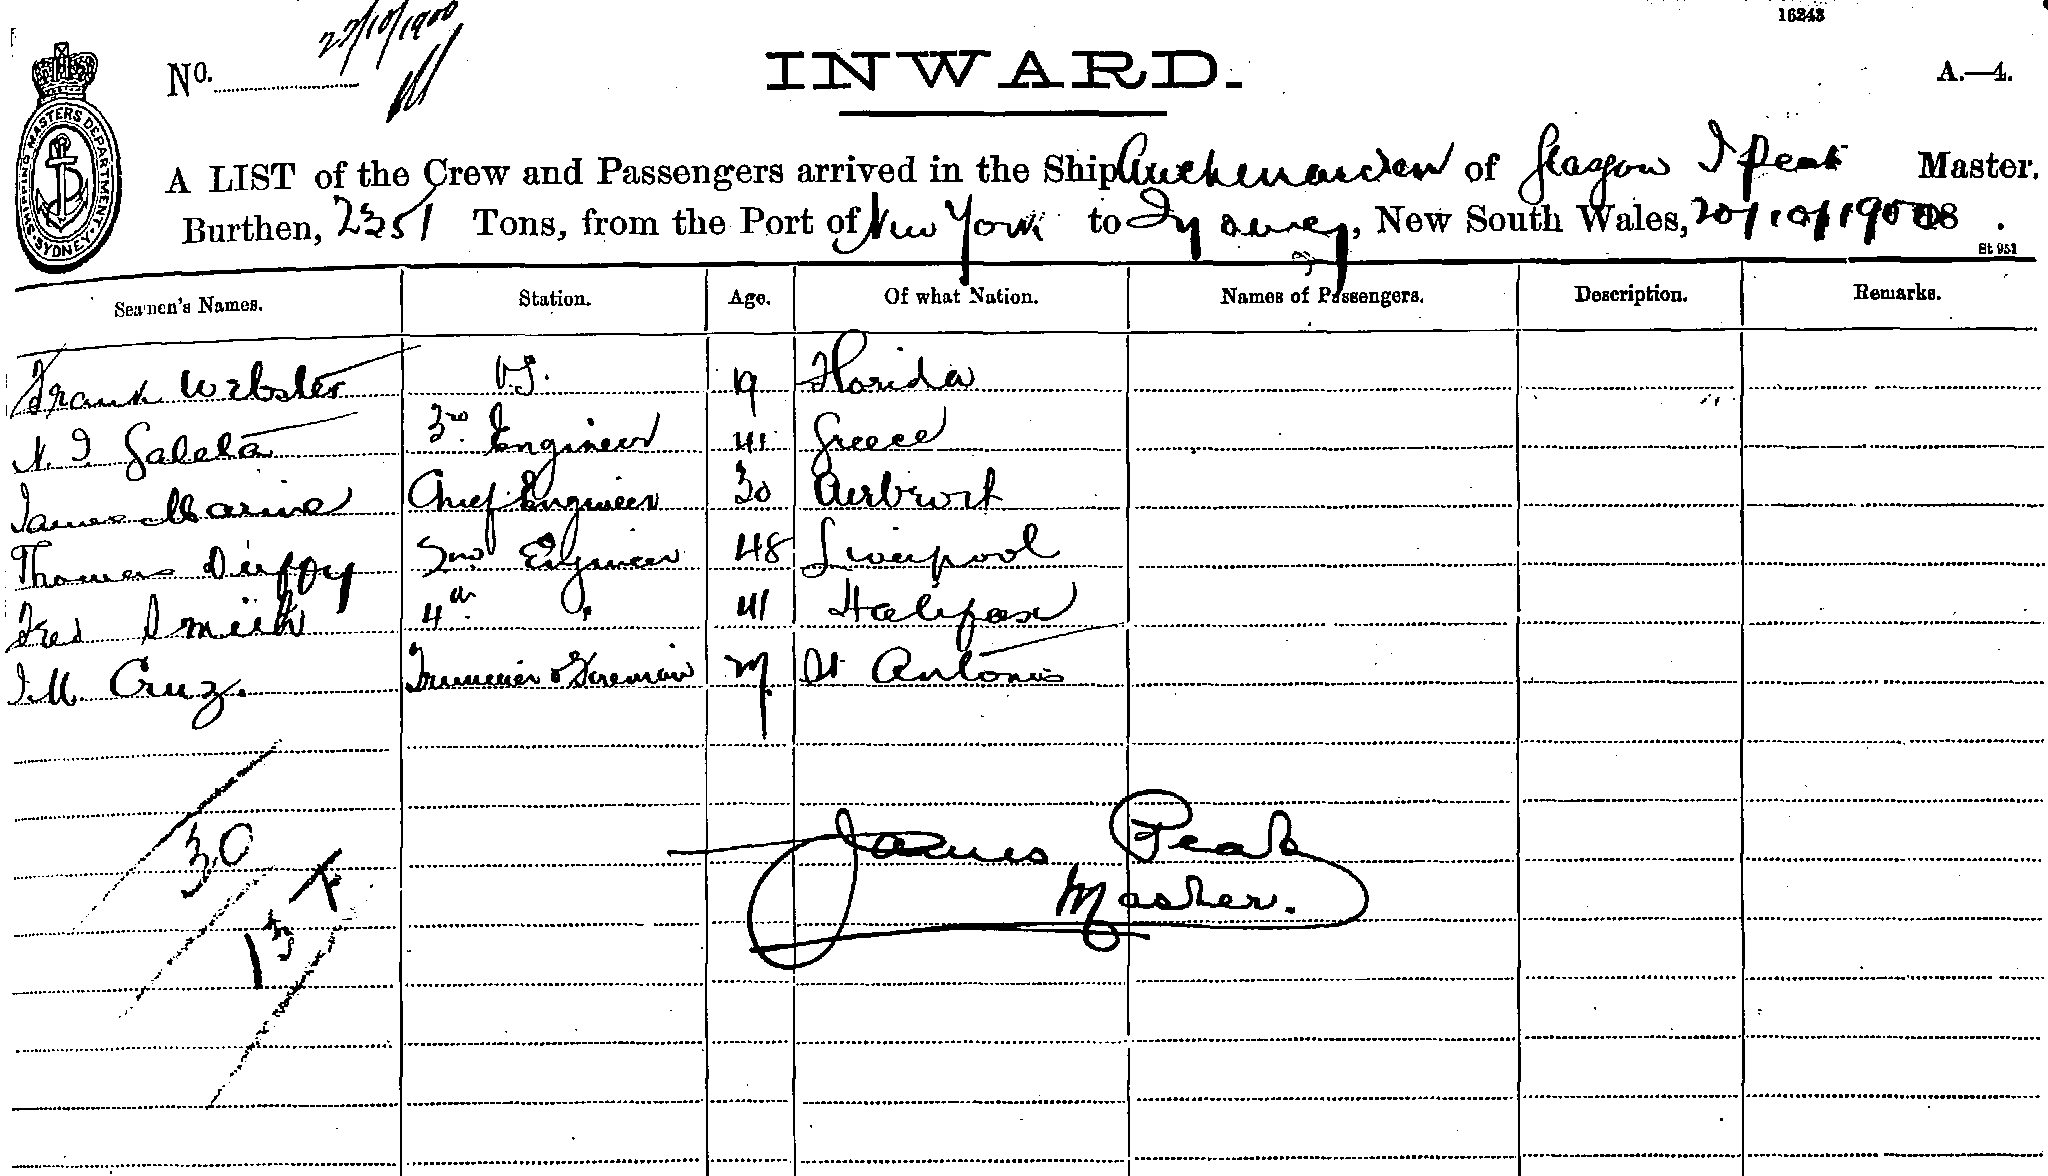 22/10/1900
16243
No.
INWARD.
A.—4.
SHIPPING MASTERS DEPARTMENT. SYDNEY
A LIST of the Crew and Passengers arrived in the Ship Auchenarden of Glasgow J Peat Master.
Burthen, 2351 Tons, from the Port of New York to Sydney, New South Wales, 20/10/1900 18 .
St 951
Seamen's Names. Station. Age. Of what Nation. Names of Passengers. Description. Remarks.
Frank Webster O.S. 19 Florida
N. I. Galeta 3rd Engineer 41 Greece
James Marine Chief Engineer 30
Thomas Duffy 2nd Engineer 48 Liverpool
Fred Smith 4th " 41 Halifax
J.M. Cruz. Trimmer & Fireman 27 St Antonio
30
13
James Peat
Master.